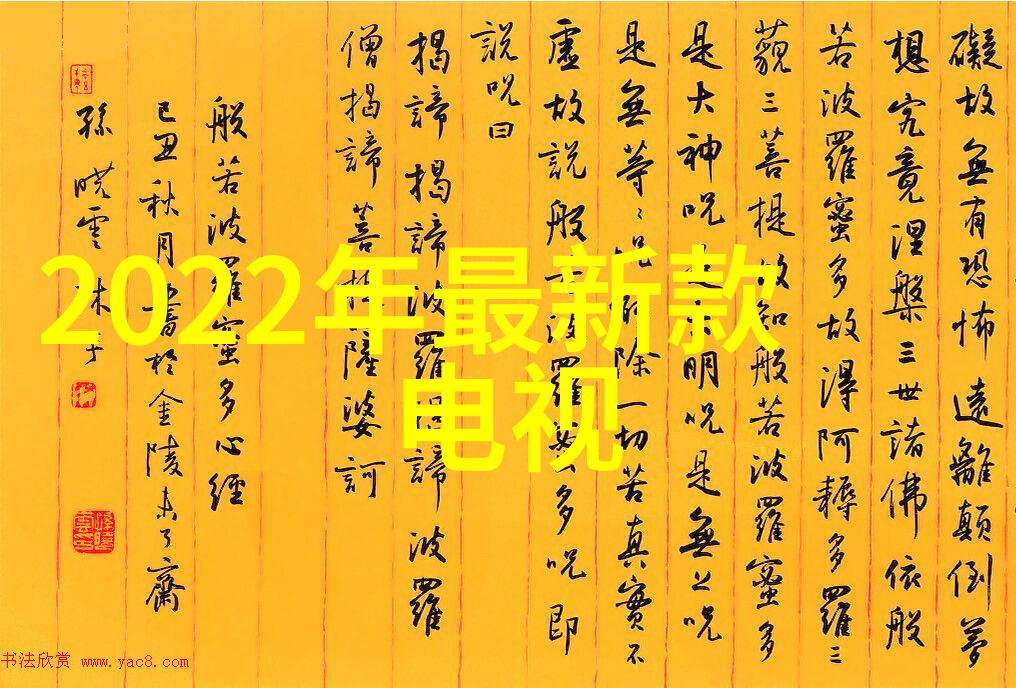 礙故無有恐怖遠離顛倒夢
想究竟涅槃三世諸佛依般
若波羅蜜多故得阿耨多羅三
藐三菩提故知般若波羅蜜多
是大神咒是大明咒是無上咒
是無等〻咒能除一切苦真實不
虛故說般若波羅蜜多咒即
說咒曰
揭諦揭諦波羅揭諦波羅
僧揭諦菩提薩婆訶
般若波羅蜜多心經
己丑秋月書於金陵未了齋
孫晓雲沐手
2022年最新款
电视
书法欣赏 www.yac8.com